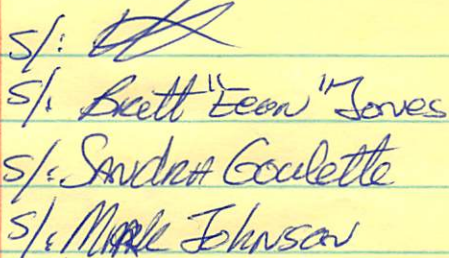 S/:
S/: Brett "Eeon" Jones
S/: Sandra Goulette
S/: Mark Johnson